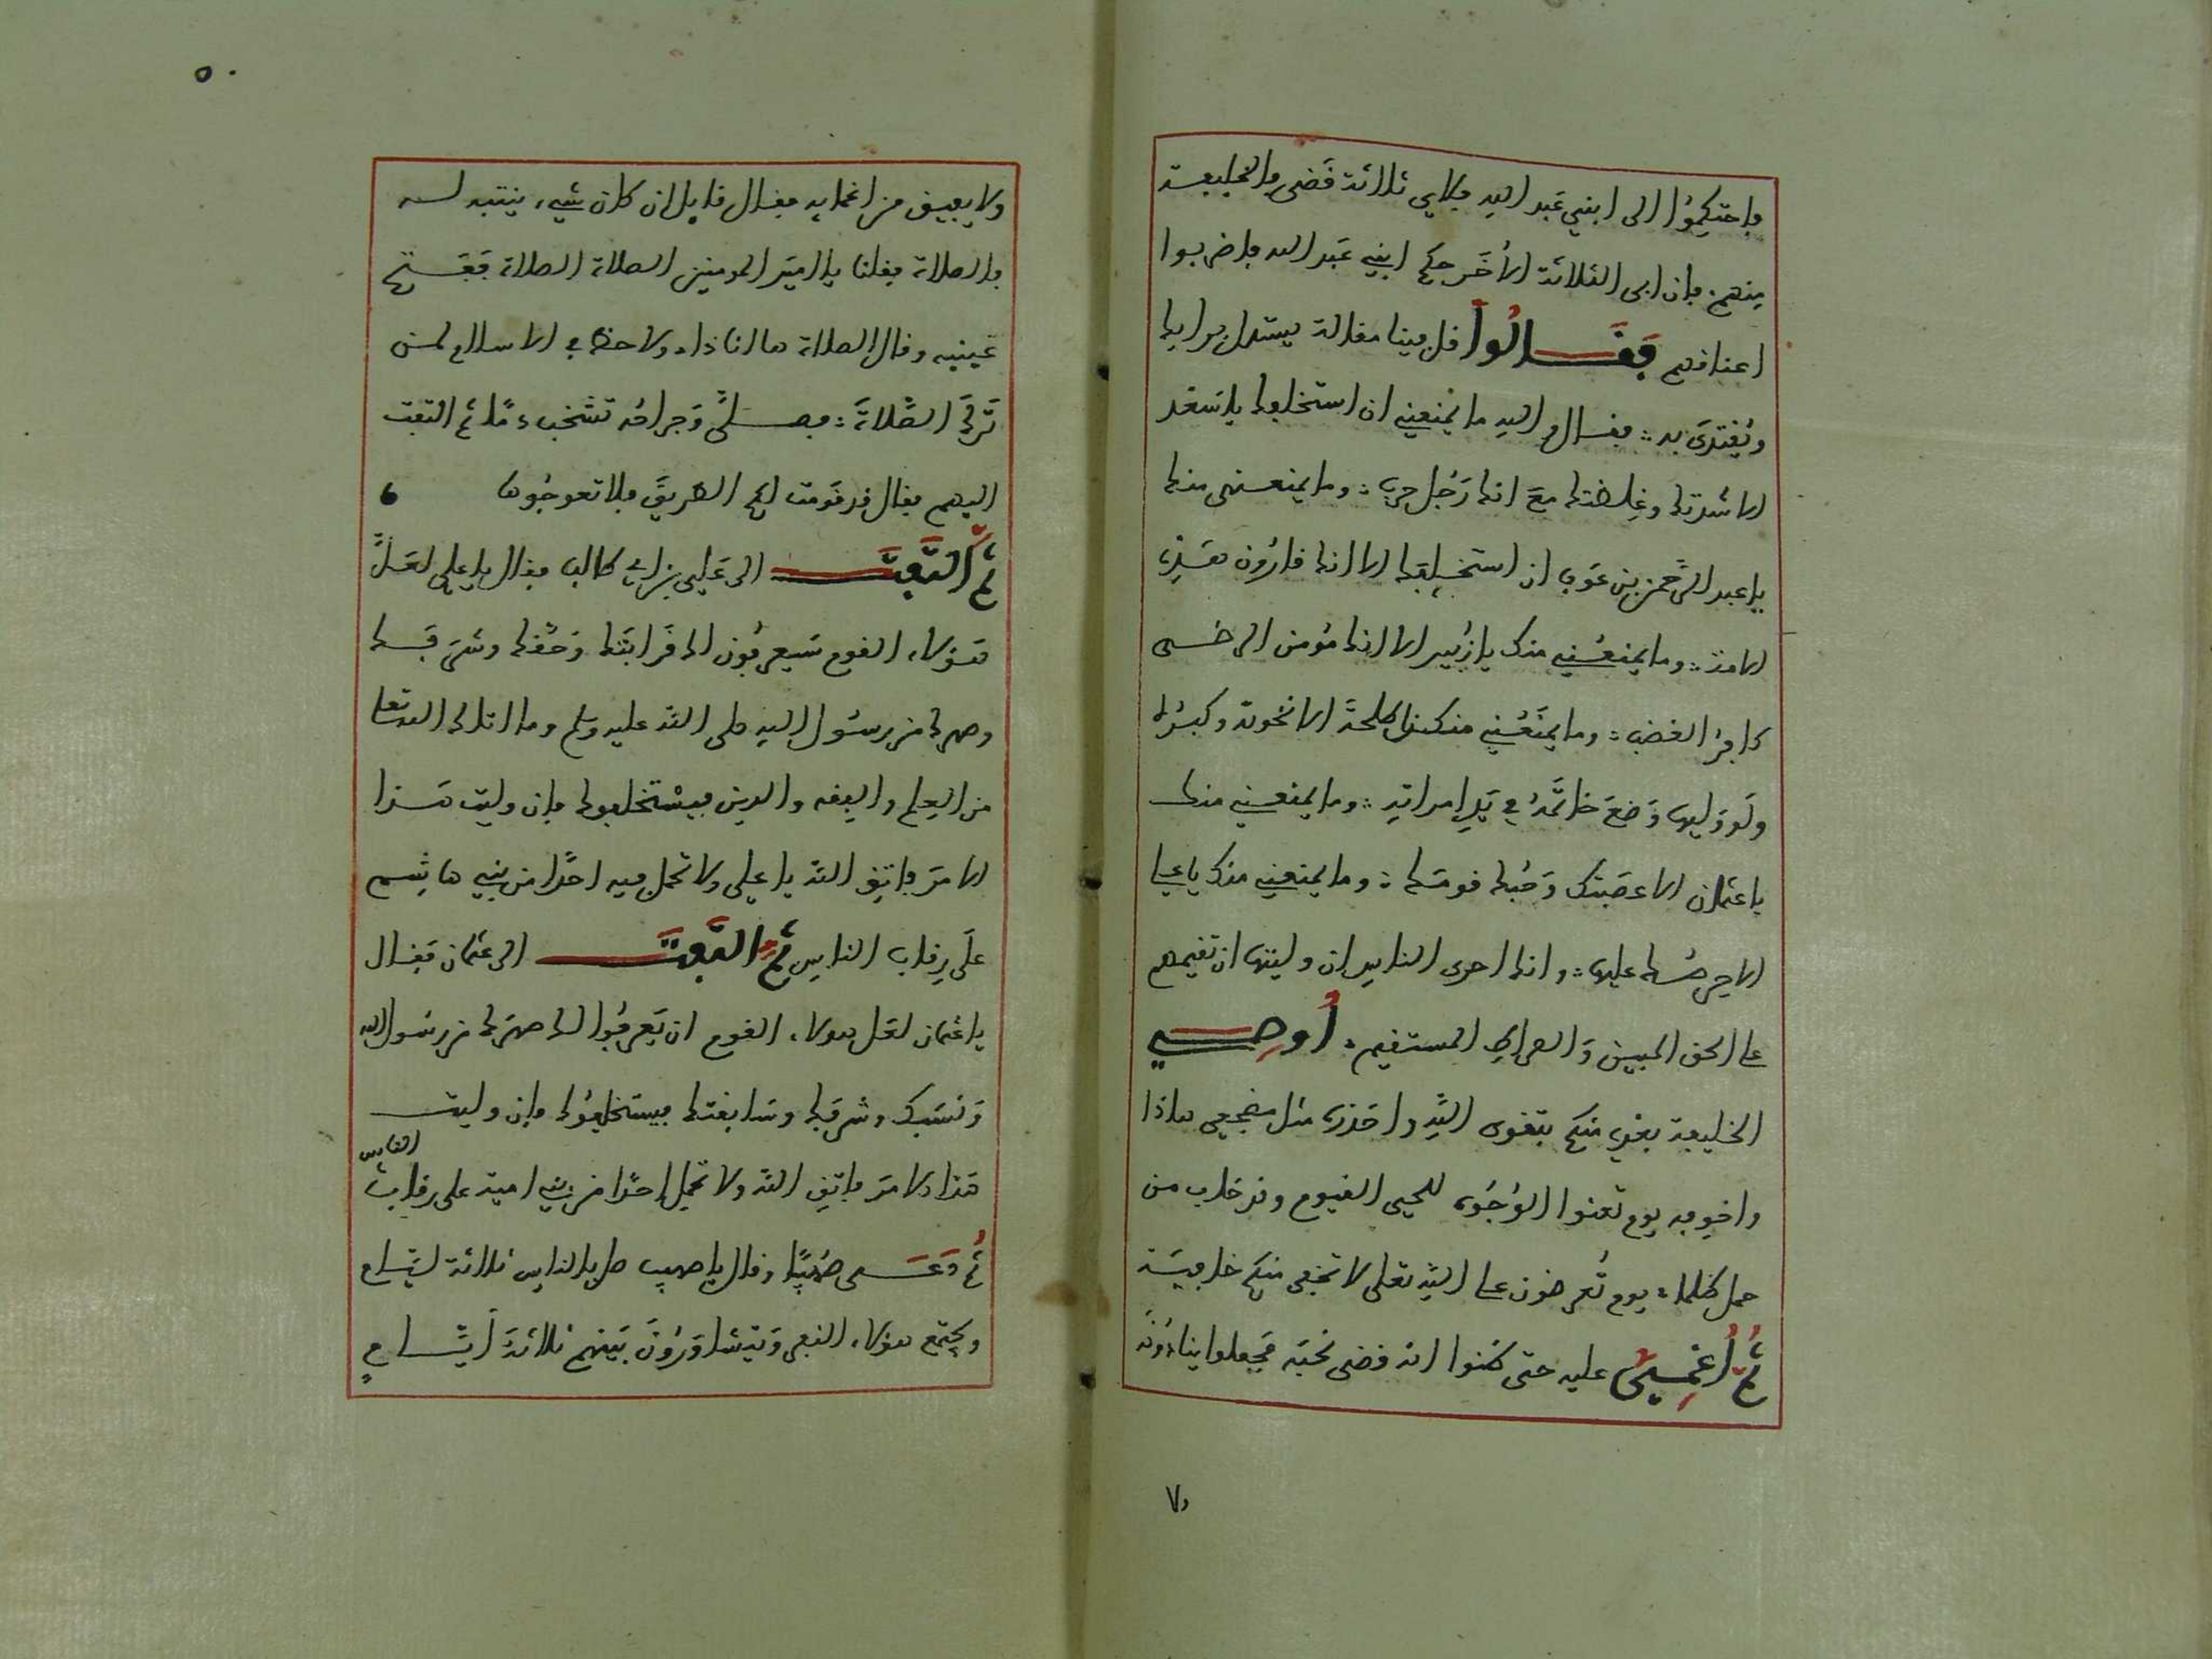 فاحتكموا الى ابني عبد الله فلاي ثلاثة قضى فالخليفة
منهم فان ابى الثلاثة الأخر حكم ابني عبد الله فاضربوا
اعناقهم فقالوا قل فينا مقالة يستدل برايك
ويقتدى به فقال والله ما يمنعني ان استخلفك يا سعد
الا شدتك وغلضتك مع انك رجل حرب وما يمنعني منك
يا عبد الرحمن بن عوف ان استخلفك الا انك فارون هذه
الامة وما يمنعني منك يا زبير الا انك مومن الرضى
كافر الغضب وما يمنعني من طلحة الا نخوته وكبره
ولو وليها وضع خاتمه في يد امراته وما يمنعني منك
يا عثمان الا عصبتك وحبك قومك وما يمنعني منك يا علي
الا حرصك عليها وانك احرى الناس ان وليتها ان تقيمهم
على الحق المبين والصراط المستقيم أوصي
الخليفة بعدي منكم بتقوى الله واحذره مثل مضجعي هاذا
واخوفه يوم تعنوا الوجوه للحي القيوم وقد خاب من
حمل ظلما يوم تعرضون على الله تعلى لا تخفى منكم خافية
ثم أغمي عليه حتى ظنوا انه قضى نحبه فجعلوا ينادونه
٥٠
ولا يفيق من اغمايه فقال قايل ان كان شيء ينتبه له
فالصلاة فقلنا يا امير المومنين الصلاة الصلاة ففتح
عينيه وقال الصلاة ها انا ذا ولا حظ في الاسلام لمن
ترك الصلاة فصلى وجراحه تشخب دما ثم التفت
اليهم فقال قد قومت لكم الطريق فلا تعوجوها
ثم التفت الى علي بن ابي طالب فقال يا علي لعل
هؤلاء القوم سيعرفون لك قرابتك وحقك وشرفك
وصهرك من رسول الله صلى الله عليه وسلم وما اتاك الله تعلى
من العلم والفقه والدين فيستخلفوك فان وليت هذا
الامر فاتق الله يا علي ولا تحمل فيه احدا من بني هاشم
على رقاب الناس ثم التفت الى عثمان فقال
يا عثمان لعل هولاء القوم ان يعرفوا لك صهرك من رسول الله
ونسبك وشرفك وسابقتك فيستخلفوك فان وليت
هذا الامر فاتق الله ولا تحمل احدا من بني امية على رقاب الناس
ثم دعى صهيبا وقال يا صهيب صل بالناس ثلاثة ايام
ويجتمع هولاء النفر ويتشاورون بينهم ثلاثة أيام